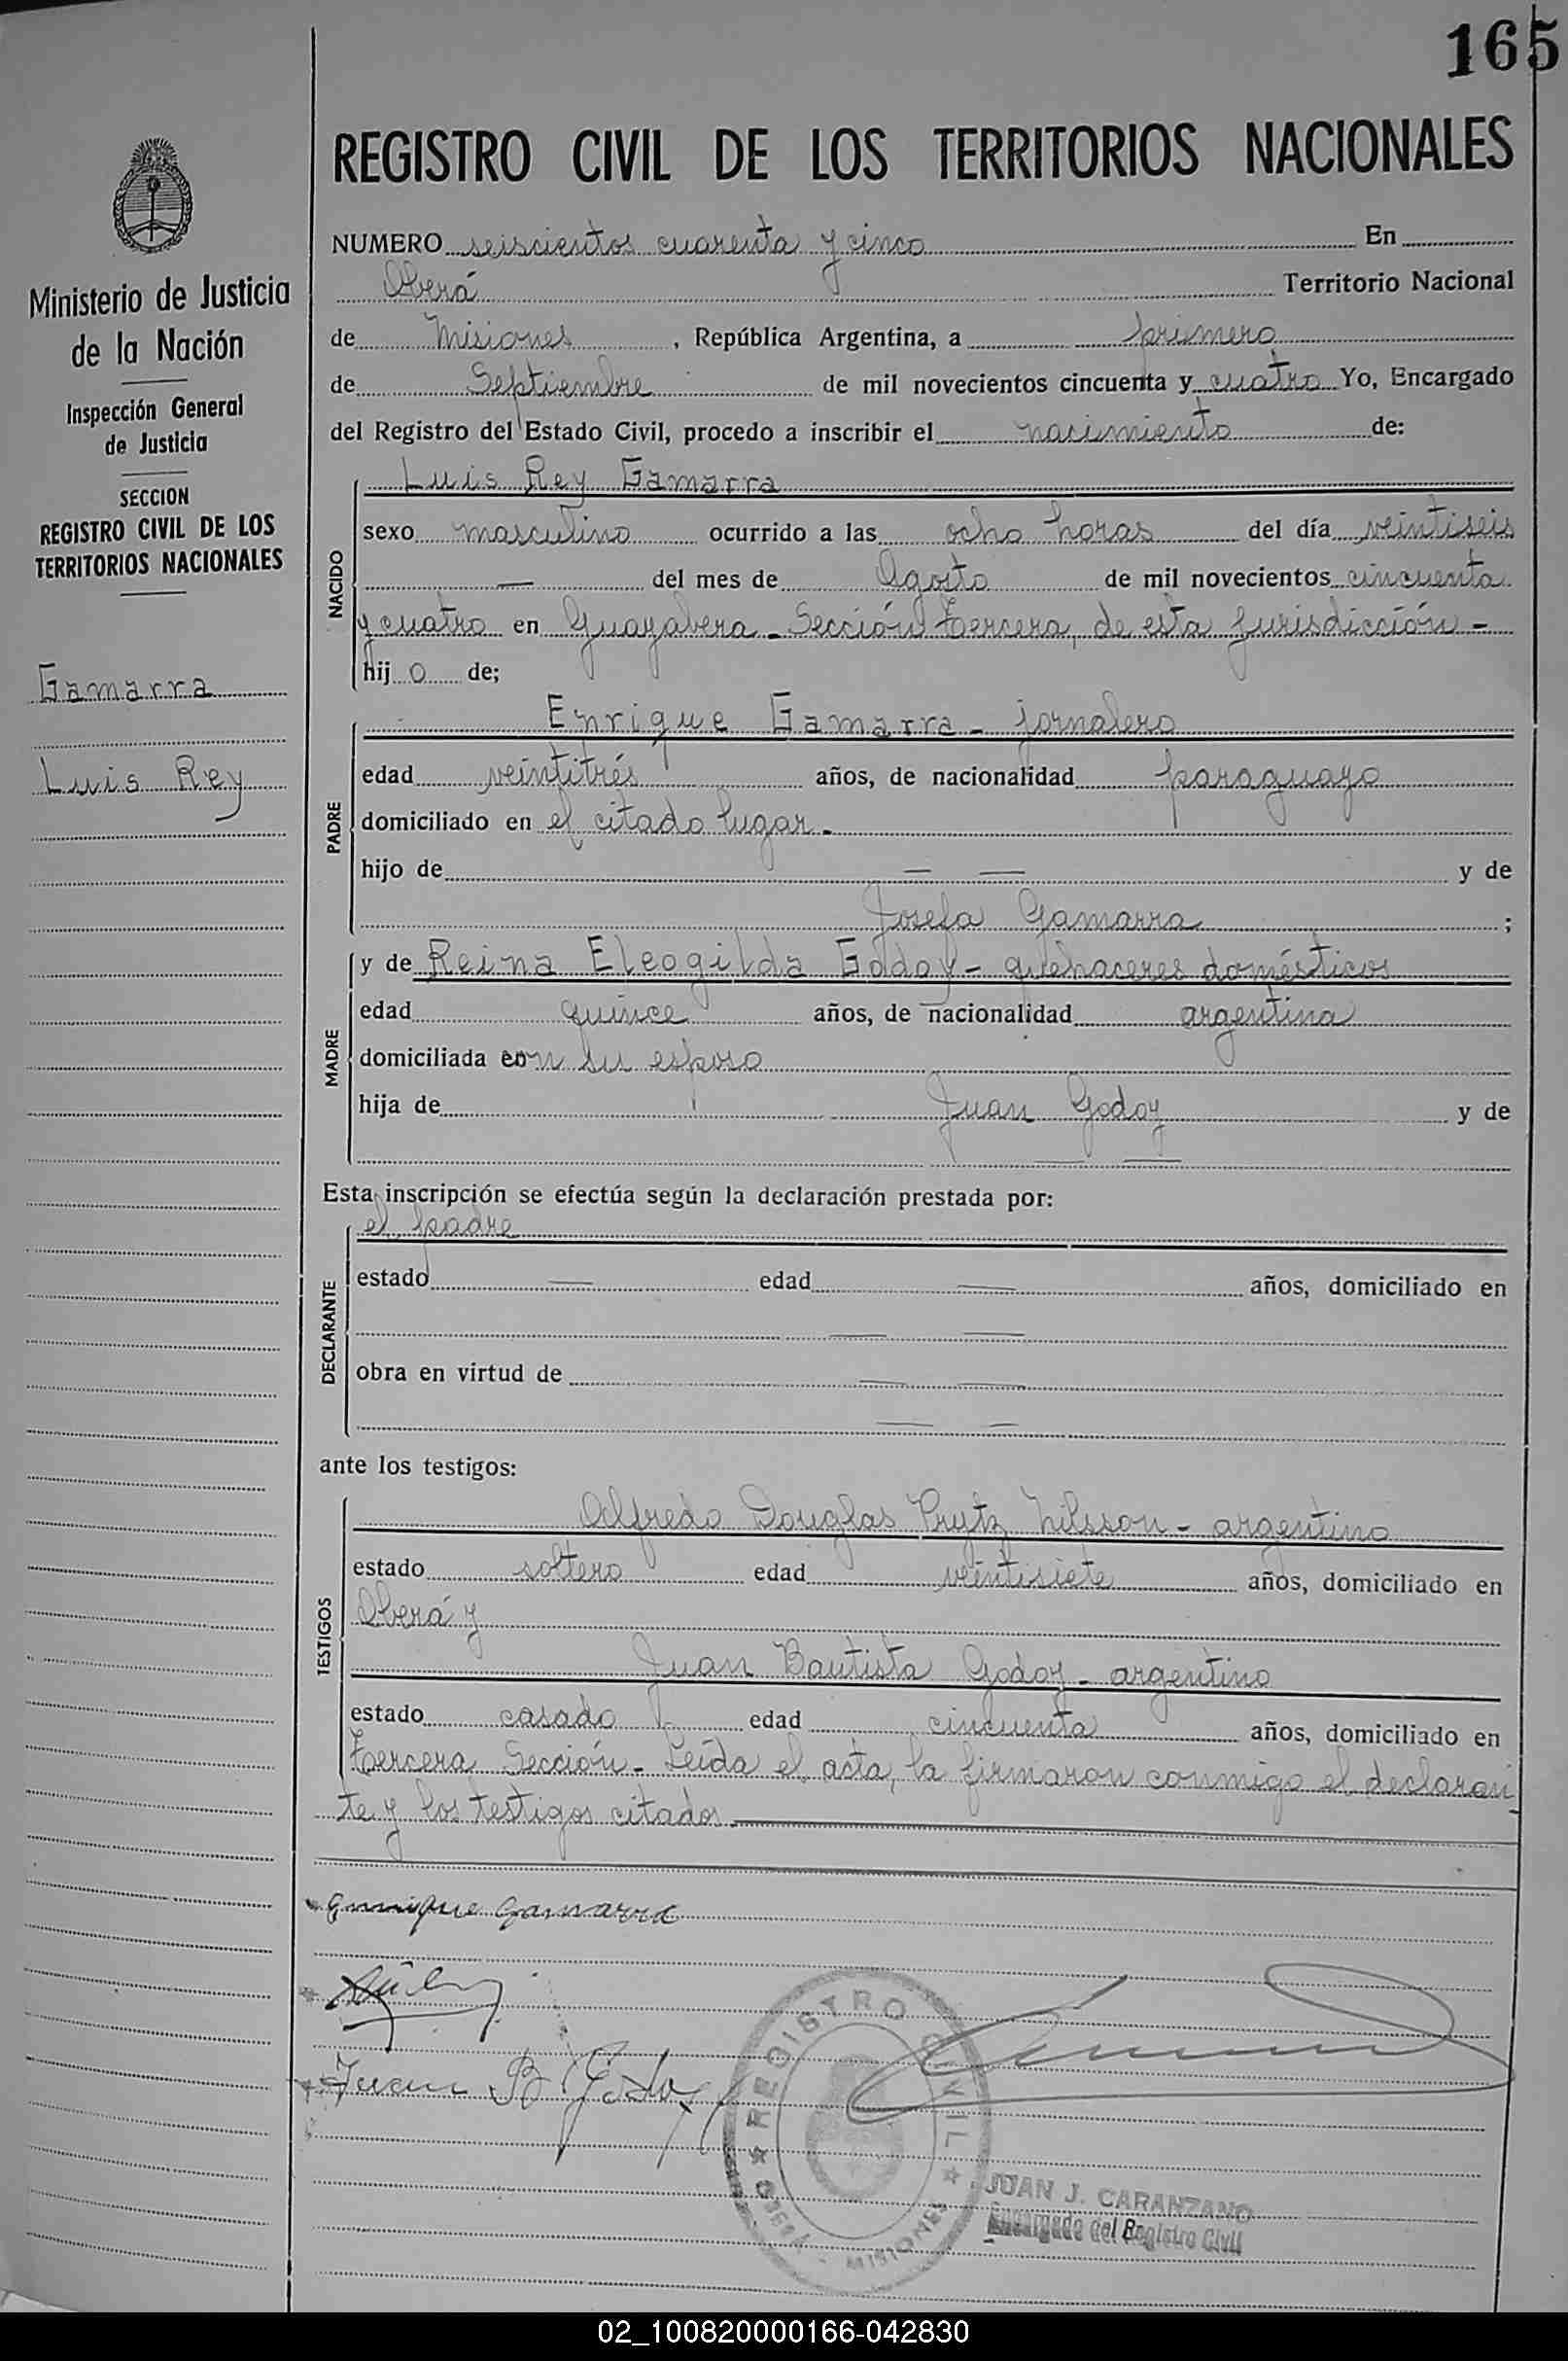 165
REGISTRO CIVIL DE LOS TERRITORIOS NACIONALES
Ministerio de Justicia
de la Nación
Inspección General
de Justicia
SECCION
REGISTRO CIVIL DE LOS
TERRITORIOS NACIONALES
Gamarra
Luis Rey
NUMERO seiscientos cuarenta y cinco En
Oberá Territorio Nacional
de Misiones , República Argentina, a primero
de Septiembre de mil novecientos cincuenta y cuatro Yo, Encargado
del Registro del Estado Civil, procedo a inscribir el nacimiento de:
NACIDO
Luis Rey Gamarra
sexo masculino ocurrido a las ocho horas del día veintiseis
— del mes de Agosto de mil novecientos cincuenta
y cuatro en Guayabera - Sección Tercera, de esta jurisdicción -
hijo de;
PADRE
Enrique Gamarra - jornalero
edad veintitrés años, de nacionalidad paraguayo
domiciliado en el citado lugar -
hijo de — — y de
Josefa Gamarra ;
MADRE
y de Reina Eleogilda Godoy - quehaceres domésticos
edad quince años, de nacionalidad argentina
domiciliada con su esposo
hija de Juan Godoy y de
— —
Esta inscripción se efectúa según la declaración prestada por:
DECLARANTE
el padre
estado — edad — años, domiciliado en
— —
obra en virtud de — —
— —
ante los testigos:
TESTIGOS
Alfredo Douglas Prytz Nilsson - argentino
estado soltero edad veintisiete años, domiciliado en
Oberá y
Juan Bautista Godoy - argentino
estado casado edad cincuenta años, domiciliado en
Tercera Sección - Leída el acta, la firmaron conmigo el declaran-
te y los testigos citados
Enrique Gamarra
Juan B Godoy
REGISTRO CIVIL
OBERÁ - MISIONES
JUAN J. CARANZANO
Encargado del Registro Civil
02_100820000166-042830